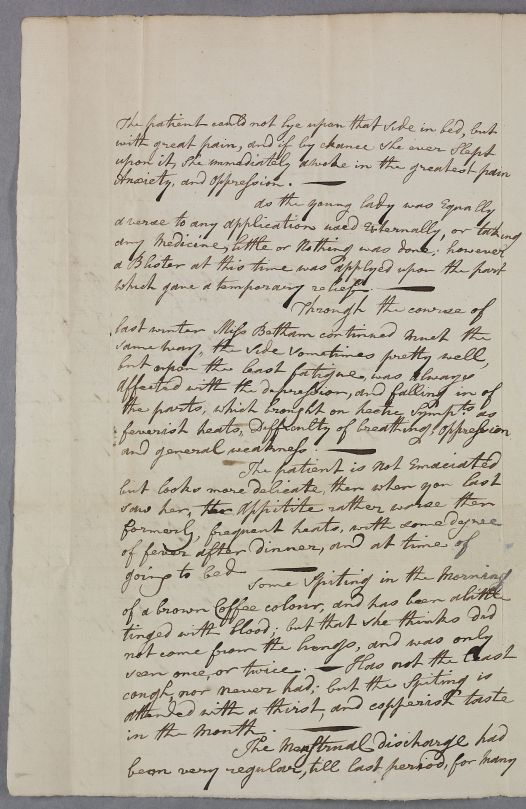 The patient could not lye upon that side in bed, but
with great pain, and if by chance she ever slept
upon it, she immediately awoke in the greatest pain
Anxiety, and oppression. —
as the young lady was Equally
averse to any application used Externally, or taking
any Medicine, little or Nothing was done; however
a Blister at this time was applyed upon the part
which gave a temporary relief. —
Through the course of
last winter Miss Betham continued much the
same way, the side sometimes pretty well,
but upon the least fatigue, was always
affected with the depression, and falling in of
the parts, which brought on hectic Sympts as
feverish heats, Difficulty of breathing, oppression
and general weakness. —
The patient is not Emaciated
but looks more delicate, then when you last
saw her, her Appitite rather worse then
formerly, frequent heats, with some degree
of fever after dinner, and at time of
going to bed —
Some Spiting in the Morning
of a brown Coffee colour, and has been alittle
tinged with blood; but that she thinks did
not come from the Lungs, and was only
seen once, or twice. — Has not the least
cough, nor never had; but the Spiting is
attended with a thirst, and copperish taste
in the Mouth. —
The Menstrual discharge had
been very regular, till last period, for many